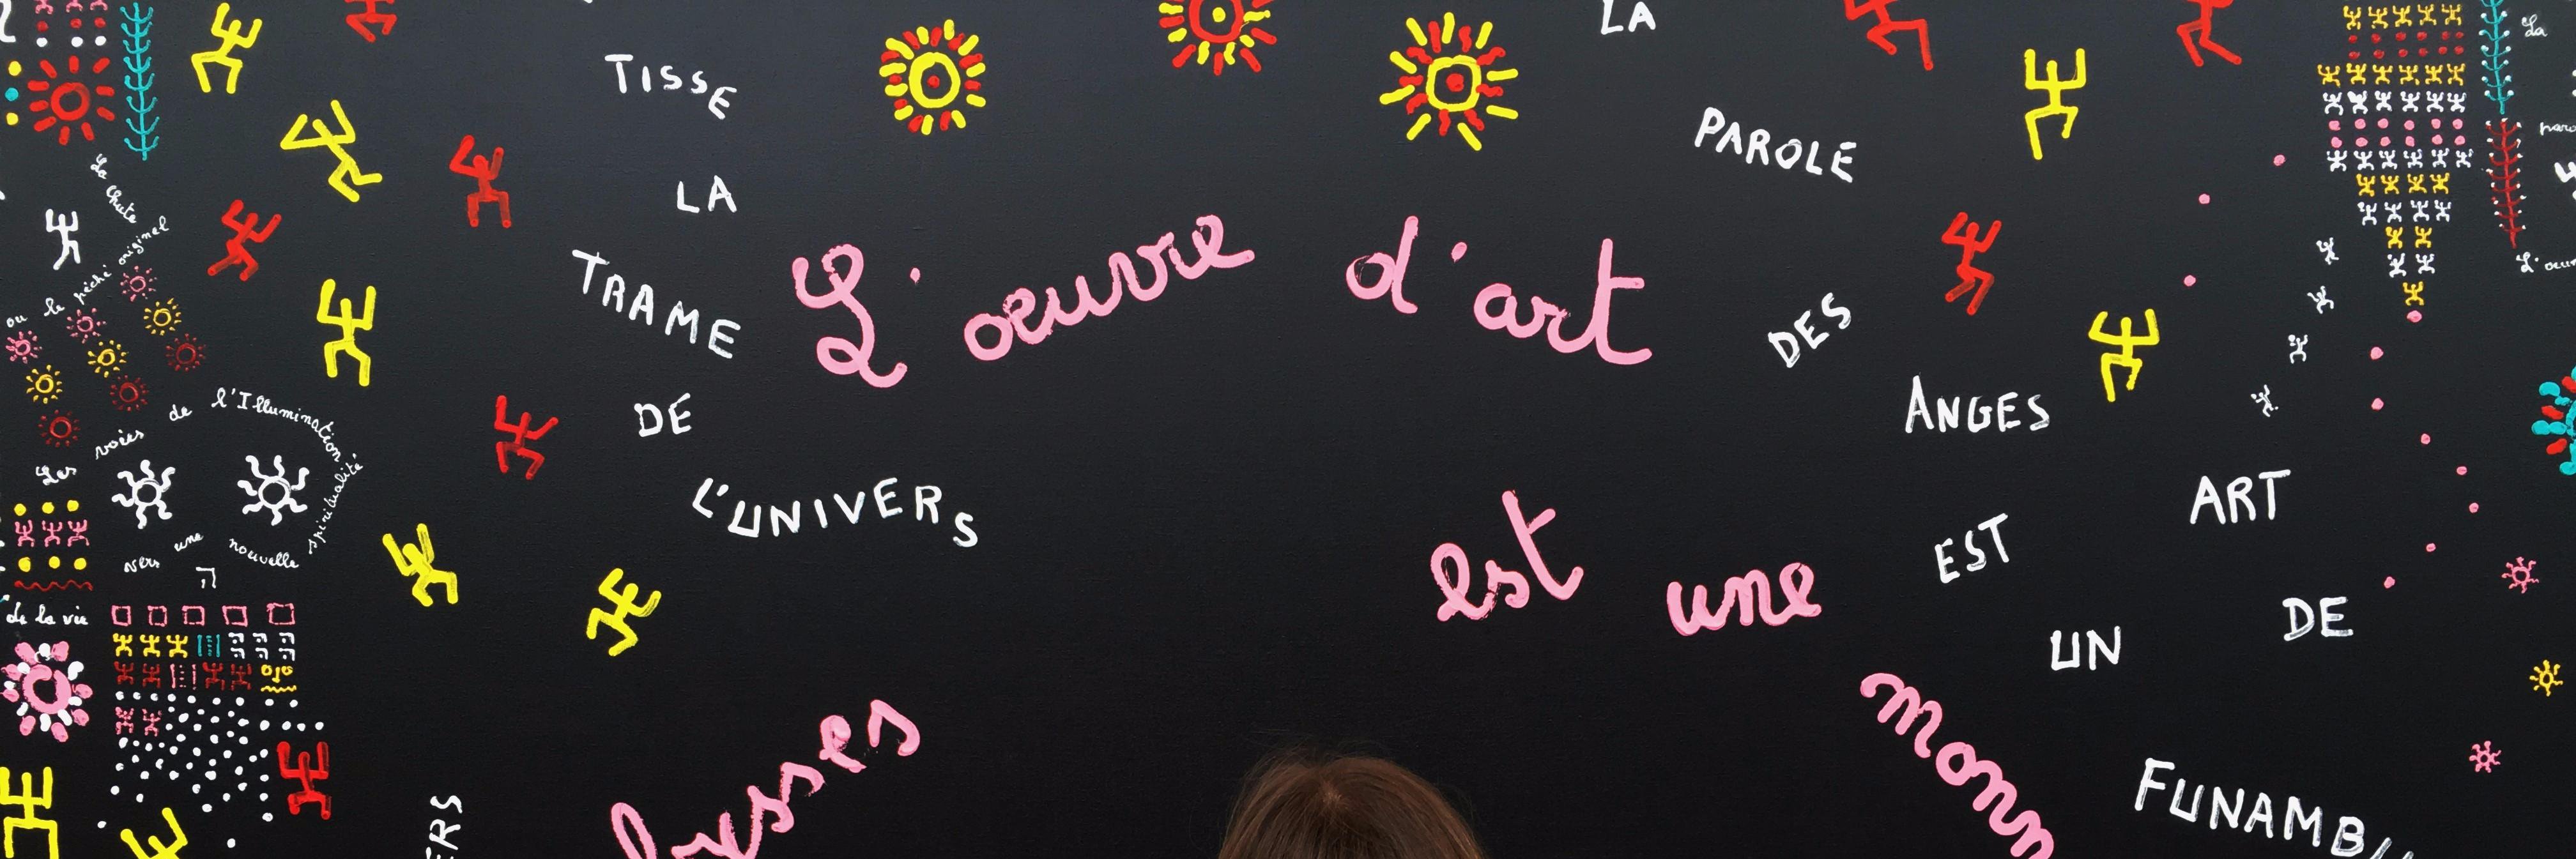 TISSE
LA
TRAME
DE
L'UNIVERS
L'œuvre d'art
est une
LA
PAROLE
DES
ANGES
EST
UN
ART
DE
La chute
ou le péché originel
Les voies de l'Illumination
vers une nouvelle spiritualité
de la vie
ERS
La